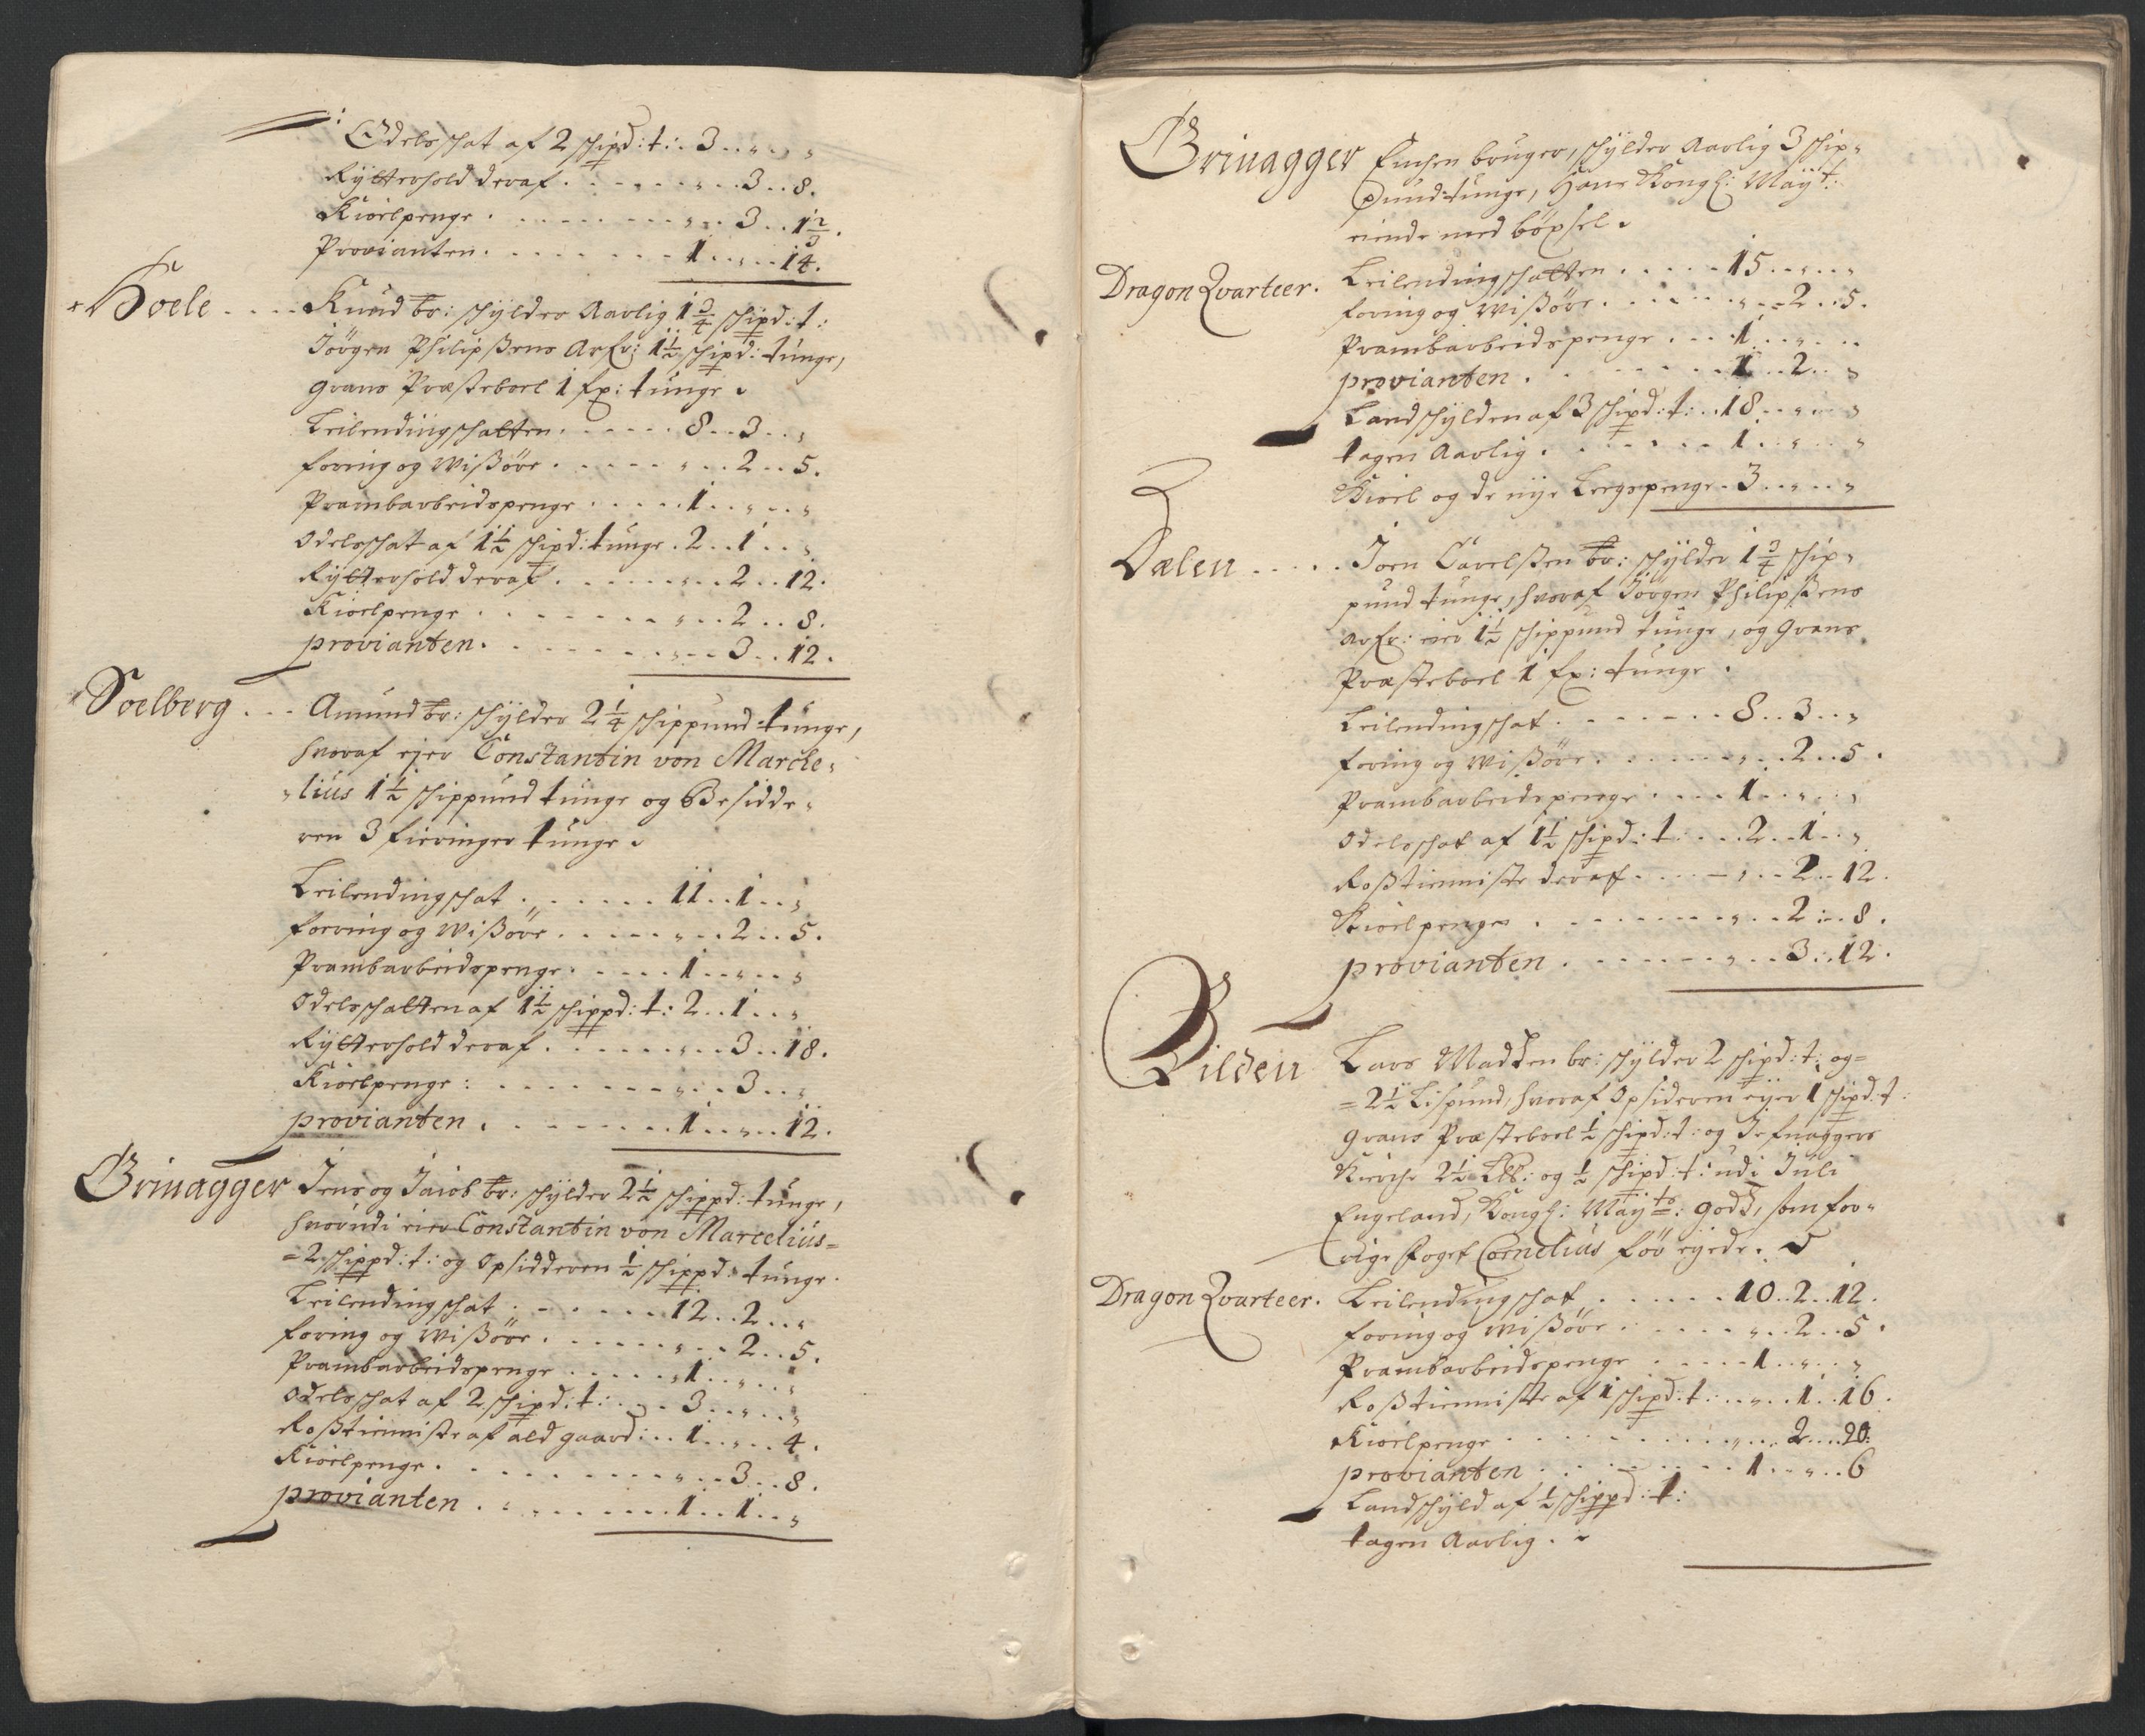 Odelsschat af 2 schipd: t: . 3 .. „ .. „
Rytterhold deraf . . . . . „ .. 3 .. 8.
Kioelpenge . . . . . . „ .. 3 .. 1 2/3.
Provianten . . . . . . 1 .. „ .. 14.
Hoele . . . . Knud br: schylder Aarlig 1 3/4 schipd: t:
Jörgen Philipßens Arfv: 1 1/2 schipd: tunge,
Grans Præsteboel 1 fr: tunge
Leilendingschatten . . . . . 8 .. 3 .. „
foring og Wißöre . . . . . „ .. 2 .. 5.
Prambarbeidspenge . . . . . 1 .. „ .. „
Odelsschat af 1 1/2 schipd: tunge . 2 .. 1 .. „
Rytterhold deraf . . . . . „ .. 2 .. 12.
Kioelpenge . . . . . . „ .. 2 .. 8.
provianten . . . . . . „ .. 3 .. 12.
Soelberg . . . Amund br: schylder 2 1/4 schippund tunge,
hvoraf ejer Constantin von Marce„
„lius 1 1/2 schippund tunge og Besidde„
ren 3 fieringer tunge
Leilendingschat . . . . . . 11 .. 1 .. „
forring og Wißöre . . . . . „ .. 2 .. 5.
Prambarbeidspenge . . . . . 1 .. „ .. „
Odelsschatten af 1 1/2 schippd: t: 2 .. 1 .. „
Rytterhold deraf . . . . . . „ .. 3 .. 18.
Kioelpenge : . . . . . . „ .. 3 .. „
provianten . . . . . . . 1 .. „ .. 12.
Grinagger Jens og Jacob br: schylder 2 1/2 schippd: tunge,
hvorudi eier Constantin von Marcelius=
=2 schippd: t: og Opsidderen 1/2 schippd: tunge.
Leilendingschat . . . . . 12 .. 2 .. „
foring og Wißöre . . . . . „ .. 2 .. 5.
Prambarbeidspenge . . . . . 1 .. „ .. „
Odelsschat af 2 schipd: t: . . . 3 .. „ .. „
Roßtienniste af ald gaard: .. 1 .. „ .. 4.
Kioelpenge . . . . . . . „ .. 3 .. 8.
provianten . . . . . . . 1 .. 1 .. „
Grinagger Enchen bruger, schylder Aarlig 3 schip„
pund tunge, Hans Kongl: Mayt:
eiende med böxsel
Dragon Qvarteer. Leilendingschatten . . . . . 15 .. „ .. „
foring og Wißöre . . . . . „ .. 2 .. 5.
Prambarbeidspenge . . . . 1 .. „ ..
provianten . . . . . . . 1 .. 2 .. „
Landschylden af 3 schipd: t: .. 18 .. „ .. „
tagen Aarlig . . . . . . . 1 .. „ .. „
Kioel og de nye Leegspenge . 3 .. „ .. „
Dælen . . . . . Joen Carelsten br: schylder 1 3/4 schip„
pund tunge, hvoraf Jörgen Philipßens
Arfv: eier 1 1/2 schippund tunge, og Grans
Præsteboel 1 fr: tunge .
Leilendingschat . . . . . . . 8 .. 3 .. „
foring og Wißöre . . . . . „ .. 2 .. 5.
Prambarbeidspenge . . . . . 1 .. „ .. „
Odelsschat af 1 1/2 schipd: t . . . 2 .. 1 .. „
Roßtienniste deraf . . . . . „ .. 2 .. 12.
Kioelpenger . . . . . . . „ .. 2 .. 8.
provianten . . . . . . . „ .. 3 .. 12.
Bilden Lars Madtzen br: schylder 2 schipd: t: og=
=2 1/2 Lispund, hvoraf Opsideren eyer 1 schipd: t:
Grans Præsteboel 1/2 schipd: t: og Jefnaggers
Kirche 2 1/2 Lb: og 1/2 schipd: t: udi Juli
Engeland, Kongl: Mayts: godtz, som for„
rige Foget Cornelius för eyede.
Dragon Qvarteer. Leilendingschat . . . . . . 10 .. 2 .. 12.
foring og Wißöre . . . . . „ .. 2 .. 5.
Prambarbeidspenge . . . . . 1 .. „ .. „
Roßtienniste af 1 schipd: t: .. „ .. 1 .. 16.
Kioelpenge . . . . . . . . „ .. 2 .. 20:
provianten . . . . . . . . 1 .. „ .. 6
Landschyld af 1/2 schippd: t:
tagen Aarlig .